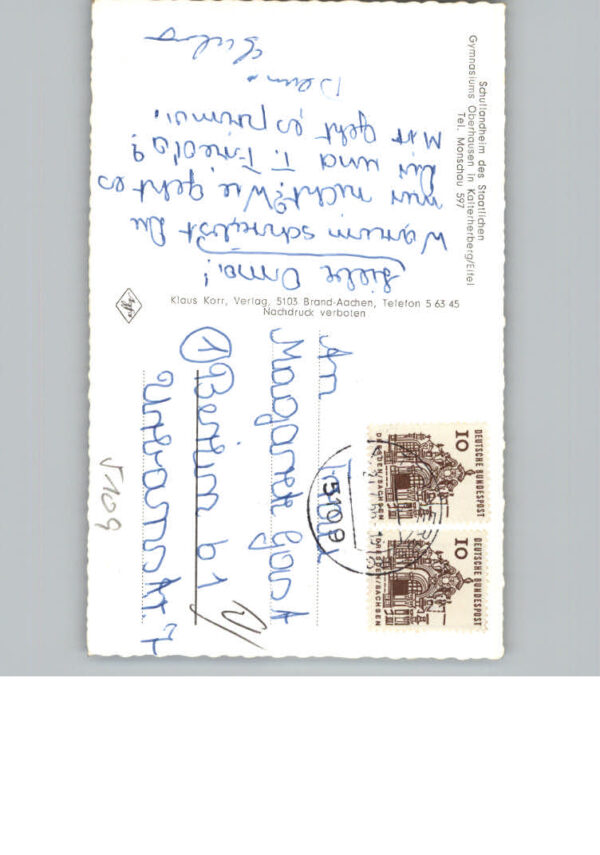 Schullandheim des Staatlichen
Gymnasiums Oberhausen in Kalterherberg/Eifel
Tel. Monschau 597
Liebe Oma!
Warum schreibst Du
mir nicht? Wie geht es
Dir und T. Frieda?
Mir geht es prima.
Dein
Klaus Korr, Verlag, 5103 Brand-Aachen, Telefon 5 63 45
Nachdruck verboten
Agfa
DEUTSCHE BUNDESPOST
10
DRESDEN/SACHSEN
DEUTSCHE BUNDESPOST
10
DRESDEN/SACHSEN
5109
An
Frau
1 Berlin 61
5109